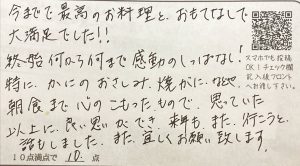 今までで最高のお料理と、おもてなしで
大満足でした!!
終始何から何まで感動のしっぱなし!
特に、かにのおさしみ、焼がに、など
朝食まで心のこもったもので、思っていた
以上に、良い思いができ、来年もまた、行こうと
話もしました。また、宜しくお願い致します。
10点満点で 10 点
スマホでも投稿
OK!チェック欄
記入後フロント
へお渡し下さい。